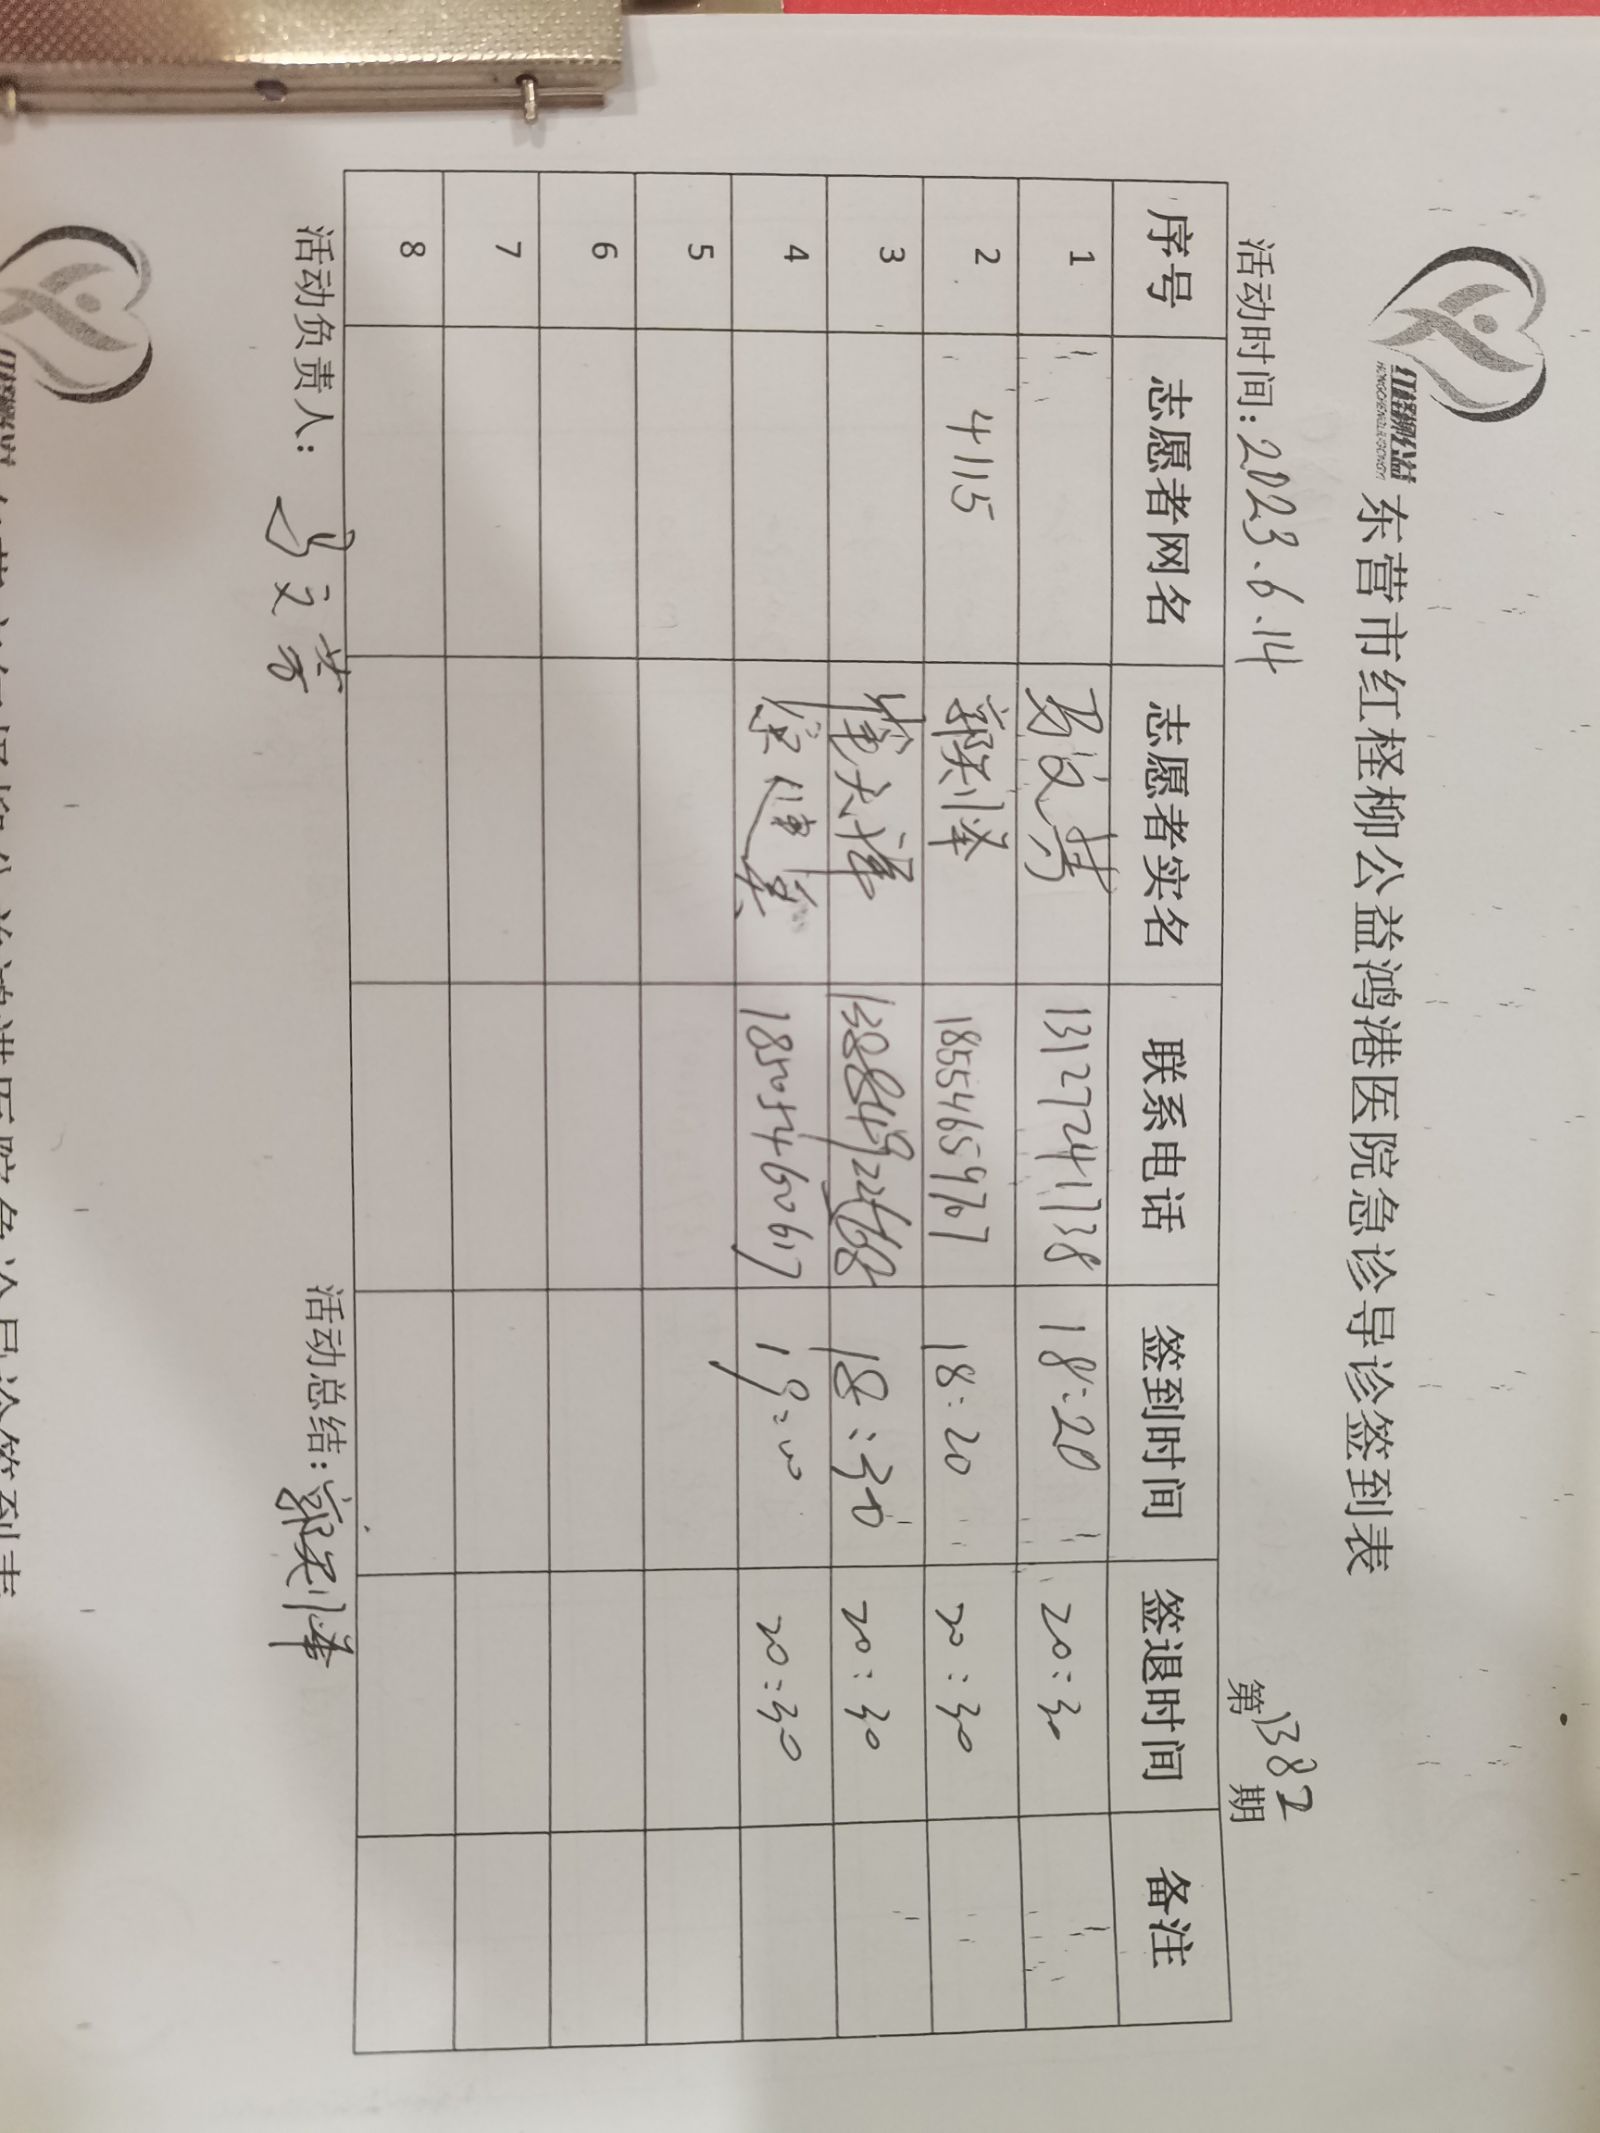 红柽柳公益
HONGCHENGLIUGONGYI
东营市红柽柳公益鸿港医院急诊导诊签到表
活动时间：2023.6.14 第1382期
序号 志愿者网名 志愿者实名 联系电话 签到时间 签退时间 备注
1 13127241738 18:20 20:30
2 4115 18554659767 18:20 20:30
3 18:30 20:30
4 18505460617 19:00 20:30
5
6
7
8
活动负责人： 活动总结：